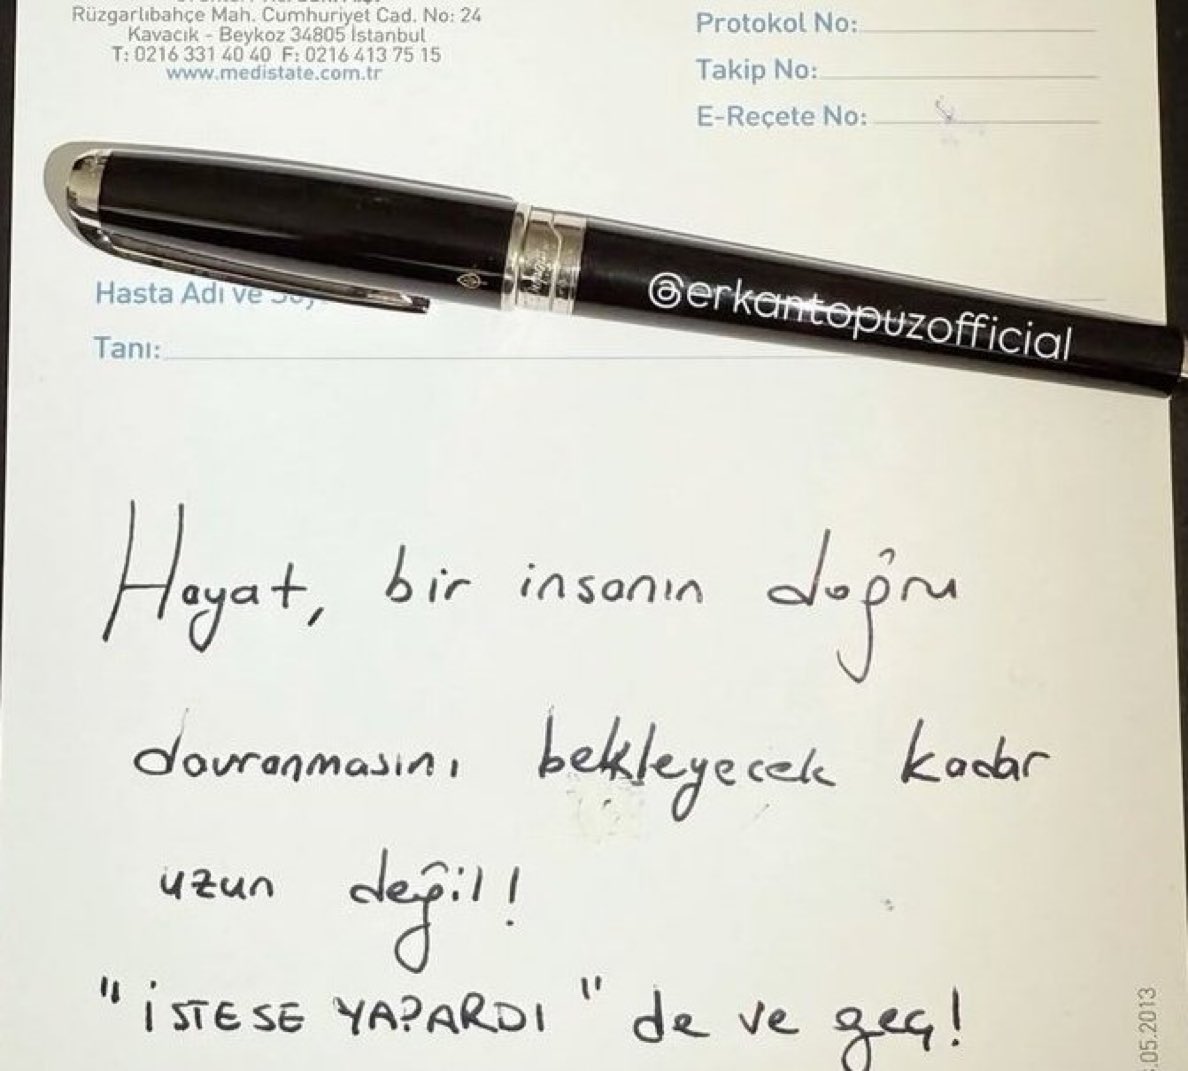 Rüzgarlıbahçe Mah. Cumhuriyet Cad. No: 24
Kavacık - Beykoz 34805 İstanbul
T: 0216 331 40 40 F: 0216 413 75 15
www.medistate.com.tr
Protokol No:
Takip No:
E-Reçete No:
@erkantopuzofficial
Hasta Adı ve
Tanı:
Hayat, bir insanın doğru
davranmasını bekleyecek kadar
uzun değil!
"İSTESE YAPARDI" de ve geç!
.05.2013